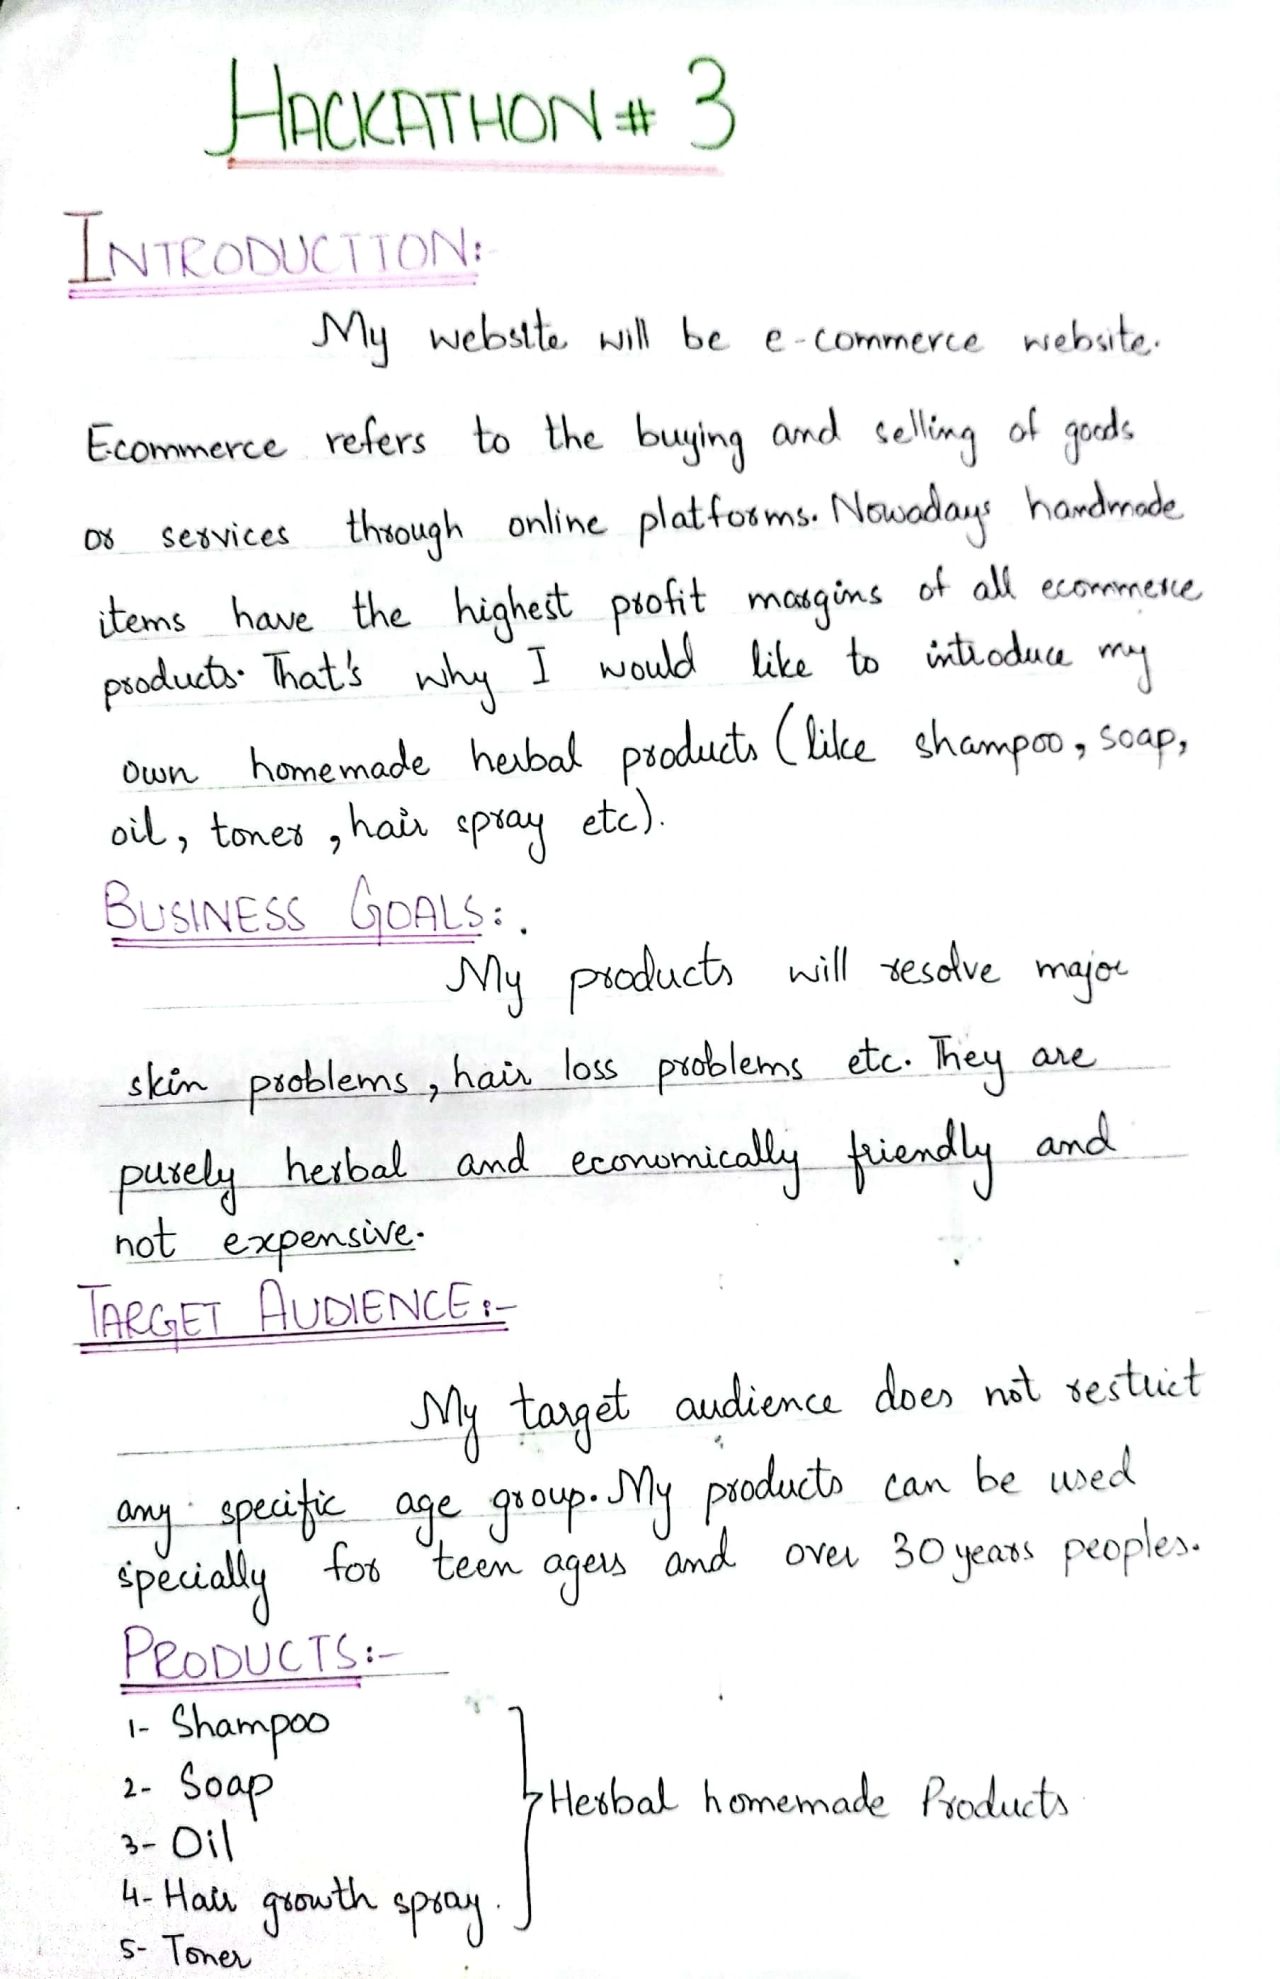 HACKATHON # 3
INTRODUCTION:-
My website will be e-commerce website.
Ecommerce refers to the buying and selling of goods
or services through online platforms. Nowadays handmade
items have the highest profit margins of all ecommerce
products. That's why I would like to introduce my
own homemade herbal products (like shampoo, soap,
oil, toner, hair spray etc).
BUSINESS GOALS:.
My products will resolve major
skin problems, hair loss problems etc. They are
purely herbal and economically friendly and
not expensive.
TARGET AUDIENCE:-
My target audience does not restrict
any specific age group. My products can be used
specially for teen agers and over 30 years peoples.
PRODUCTS:-
1- Shampoo
2- Soap
Herbal homemade Products
3- Oil
4- Hair growth spray.
5- Toner